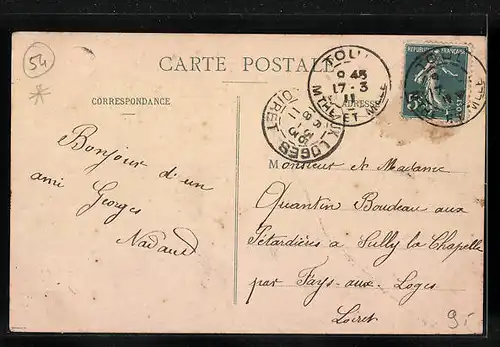 54
CARTE POSTALE
REPUBLIQUE FRANÇAISE
5c
POSTES
TOUL
9 45
17-3
11
MTHE-ET-MLLE
CORRESPONDANCE
ADRESSE
LOGES
LOIRET
Monsieur et Madame
Quantin Boudeau aux
Pétardières à Sully la Chapelle
par Fays-aux-Loges
Loiret
Bonjour d'un
ami Georges
Nadaud
9.-